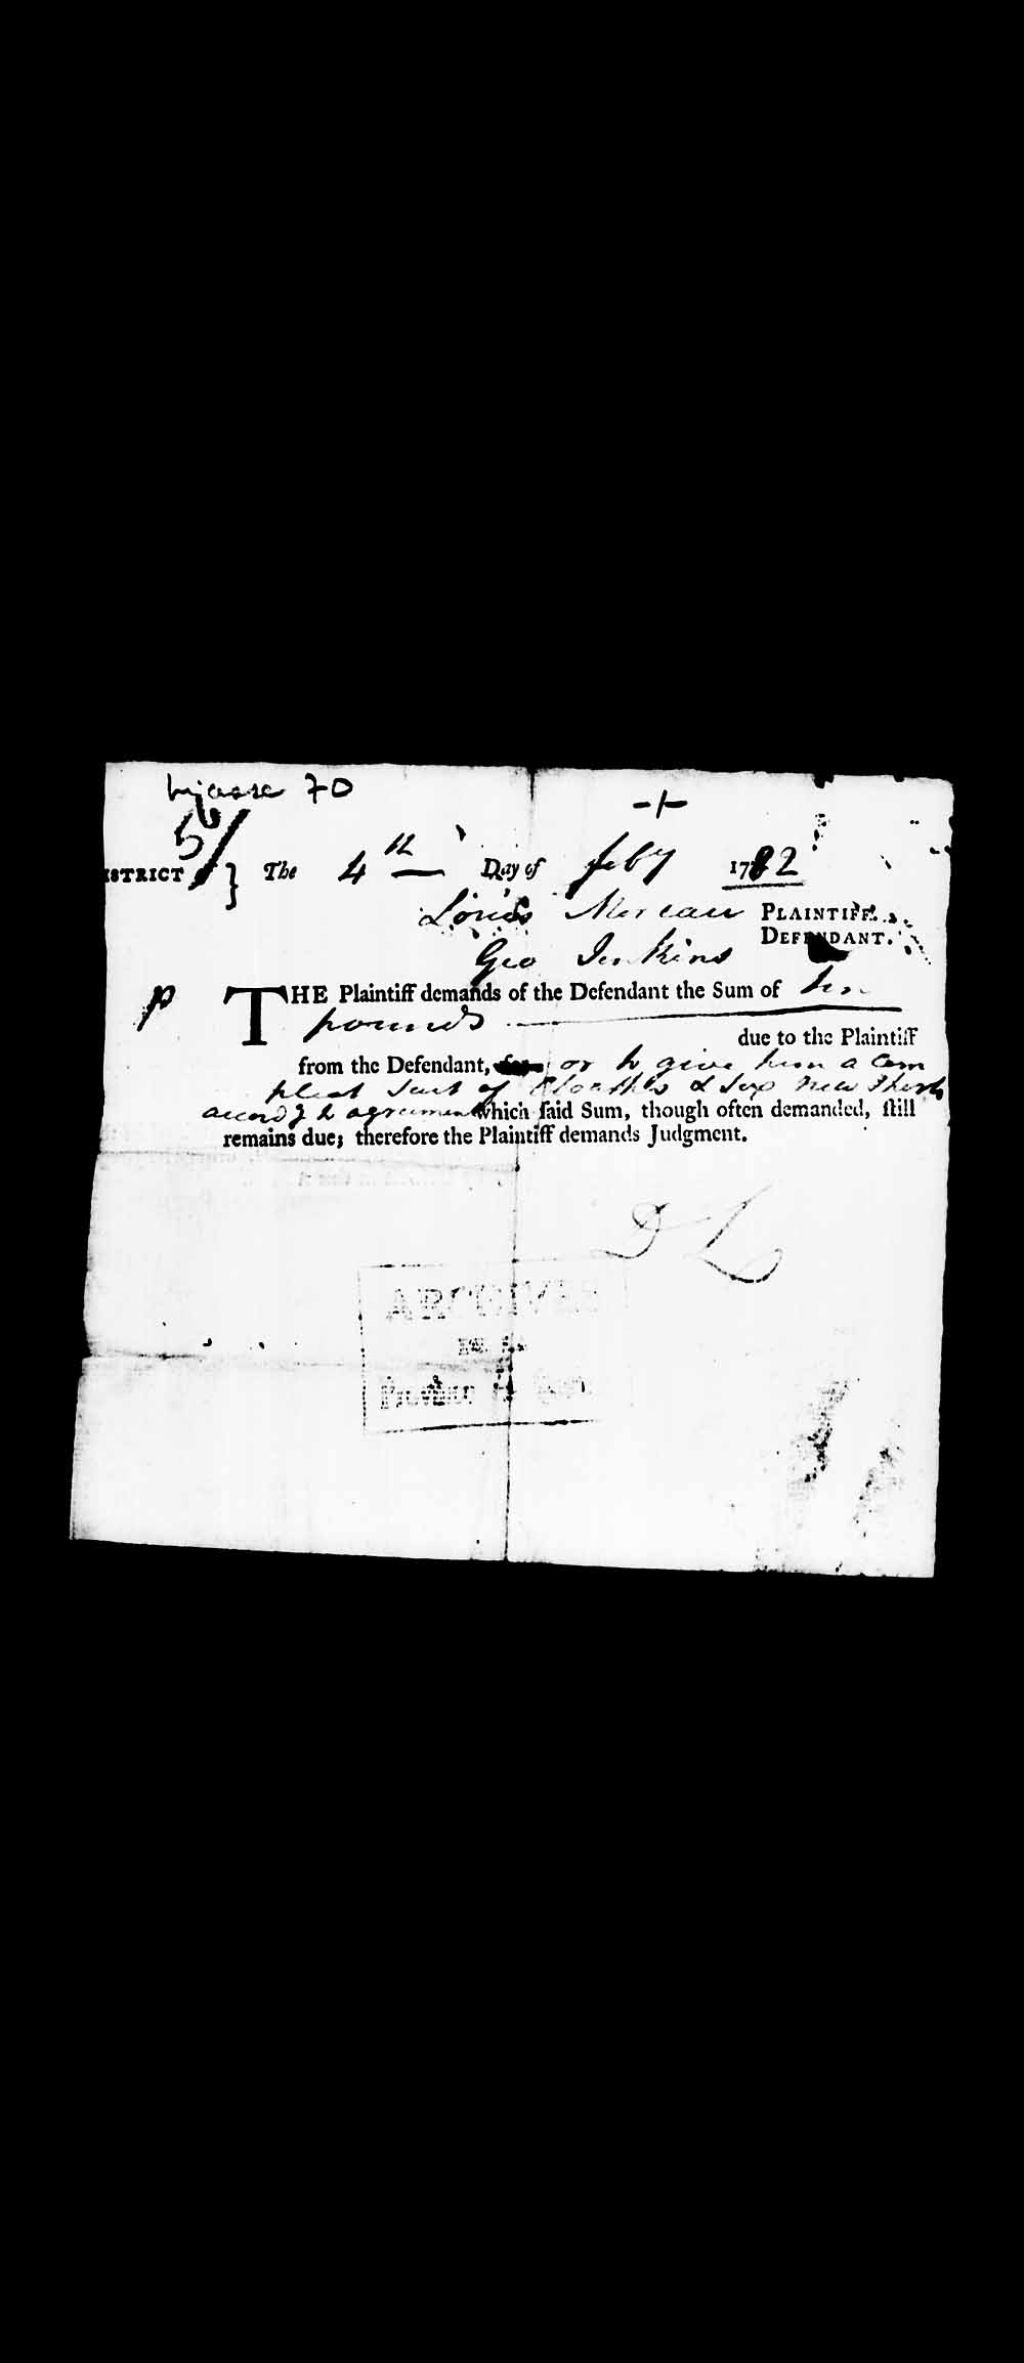 70
5/
ISTRICT } The 4th Day of feby 1782
Louis Moreau PLAINTIFF.
Geo Jenkins DEFENDANT.
P THE Plaintiff demands of the Defendant the Sum of ten
pounds due to the Plaintiff
from the Defendant, or to give him a Com
pleat Suit of Cloathes & Six New Shirts
accordg to agreement which ſaid Sum, though often demanded, ſtill
remains due; therefore the Plaintiff demands Judgment.
D L
ARCHIVES